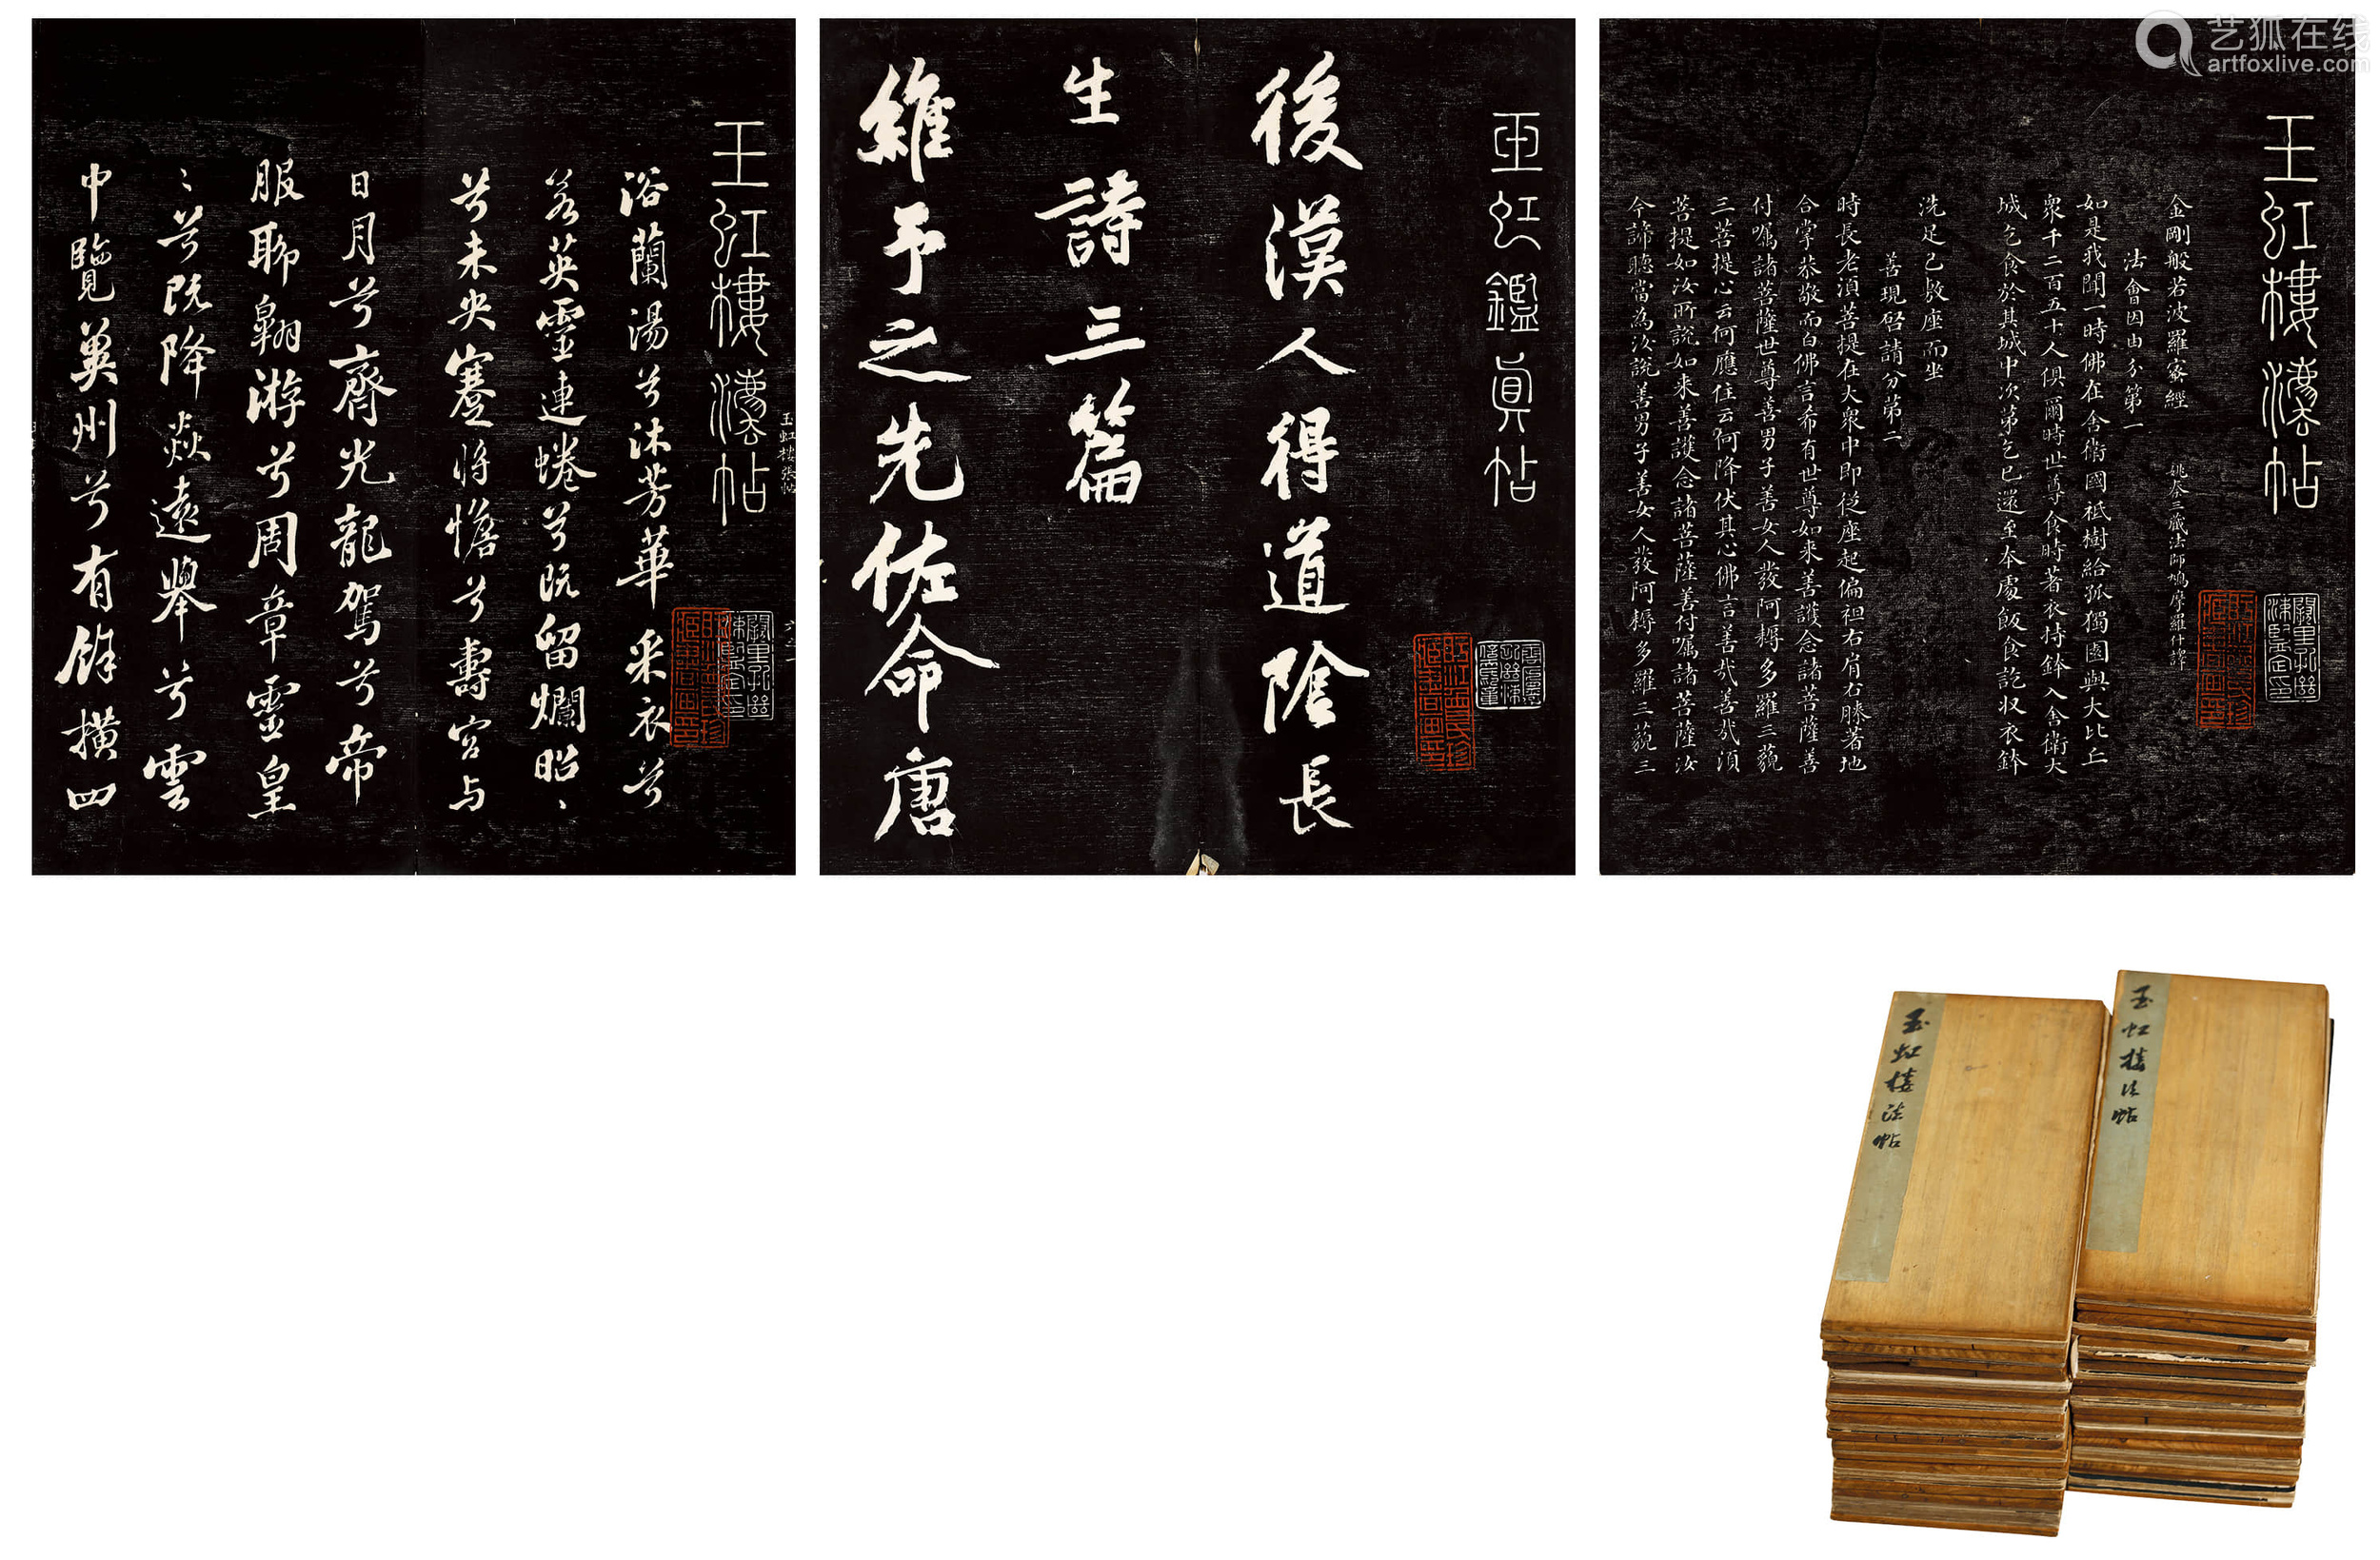 艺狐在线
artfoxlive.com
玉虹樓法帖
浴蘭湯兮沐芳華采衣兮
若英靈連蜷兮既留爛昭〻
兮未央蹇將憺兮壽宮与
日月兮齊光龍駕兮帝
服聊翱游兮周章靈皇
〻兮既降猋遠舉兮雲
中覽冀州兮有餘橫四
玉虹鑑真帖
後漢人得道陰長
生詩三篇
維予之先佐命唐
玉虹樓法帖
金剛般若波羅蜜經
姚秦三藏法師鳩摩羅什譯
法會因由分第一
如是我聞一時佛在舍衛國祇樹給孤獨園與大比丘
眾千二百五十人俱爾時世尊食時著衣持鉢入舍衛大
城乞食於其城中次第乞已還至本處飯食訖收衣鉢
洗足已敷座而坐
善現啓請分第二
時長老須菩提在大眾中即從座起偏袒右肩右膝著地
合掌恭敬而白佛言希有世尊如來善護念諸菩薩善
付囑諸菩薩世尊善男子善女人發阿耨多羅三藐
三菩提心云何應住云何降伏其心佛言善哉善哉須
菩提如汝所說如來善護念諸菩薩善付囑諸菩薩汝
今諦聽當為汝說善男子善女人發阿耨多羅三藐三
玉虹樓法帖
玉虹樓法帖